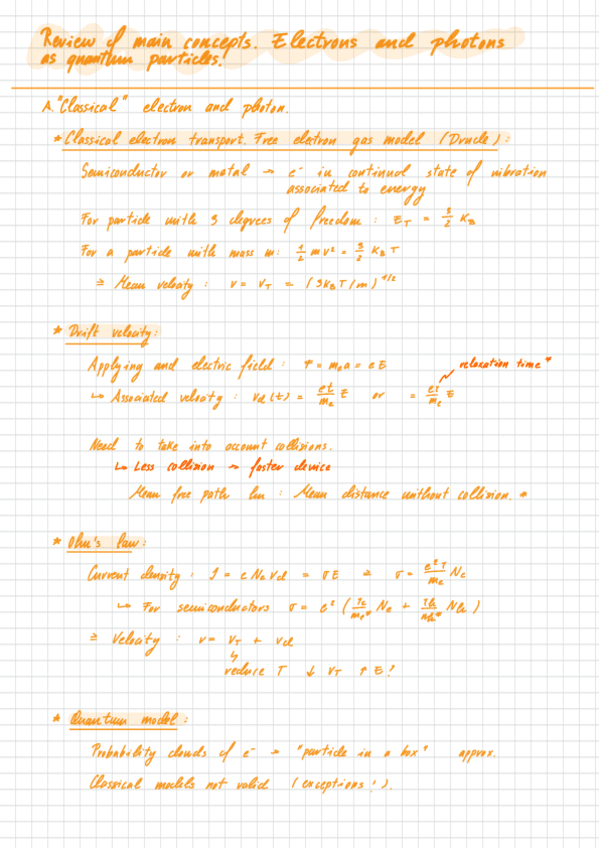 Review of main concepts. Electrons and photons
as quantum particles!
A. "Classical" electron and photon.
* Classical electron transport. Free electron gas model (Drude):
Semiconductor or metal → e⁻ in continual state of vibration
associated to energy
For particle with 3 degrees of freedom: E_T = 3/2 K_B
For a particle with mass m: 1/2 m v² = 3/2 K_B T
⇒ Mean velocity: v = v_T = (3K_B T/m)^1/2
* Drift velocity:
Applying and electric field: F = m_e a = e E
relaxation time *
↳ Associated velocity: v_d(t) = et/m_e E or = eτ/m_e E
Need to take into account collisions.
↳ Less collision → faster device
Mean free path lm: Mean distance without collision. *
* Ohm's law:
Current density: J = e N_e v_d = σE ⇒ σ = e²τ/m_e N_e
↳ For semiconductors σ = e² (τe/m_e* N_e + τh/m_h* N_h)
⇒ Velocity: v = v_T + v_d
↳
reduce T ↓ v_T ↑ E!
* Quantum model:
Probability clouds of e⁻ → "particle in a box" approx.
Classical models not valid (exceptions!).